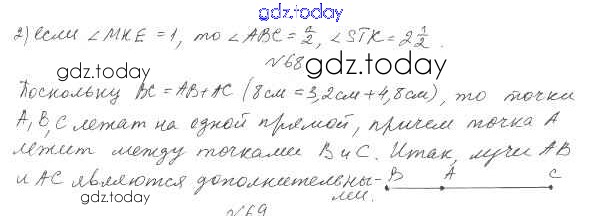 gdz.today
2) если ∠MKE = 1, то ∠ABC = 1/2, ∠STK = 2 1/2.
№68
gdz.today
gdz.today
Поскольку BC = AB + AC (8см = 3,2см + 4,8см), то точки
A, B, C лежат на одной прямой, причем точка A
лежит между точками B и C. Итак, лучи AB
и AC являются дополнительны-
ми.
B A C
gdz.today
gdz.today
№69